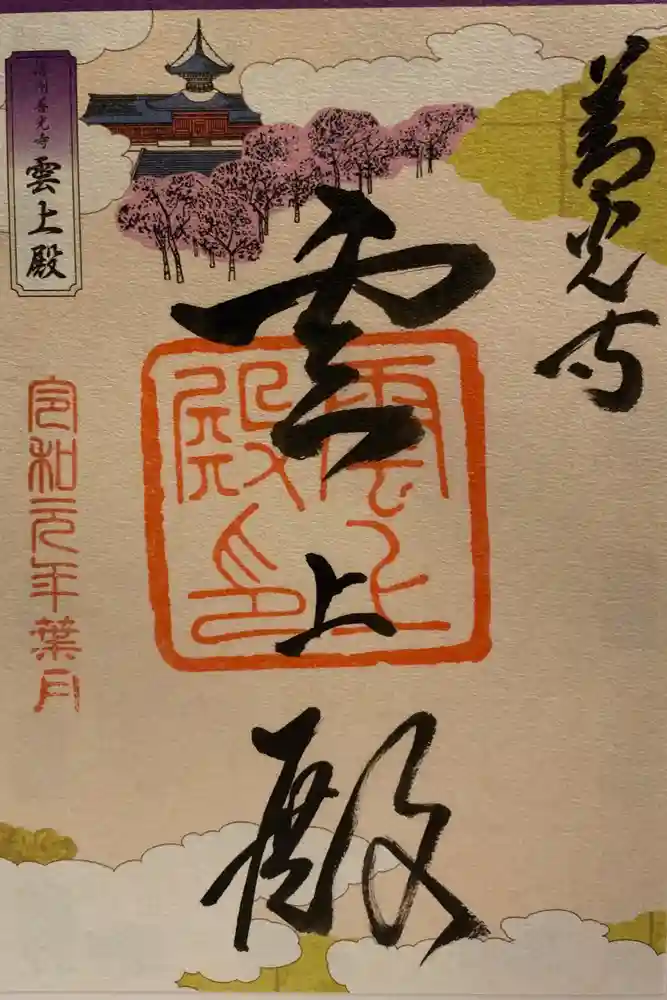 善光寺
雲上殿
雲上殿印
信州善光寺
雲上殿
令和元年葉月